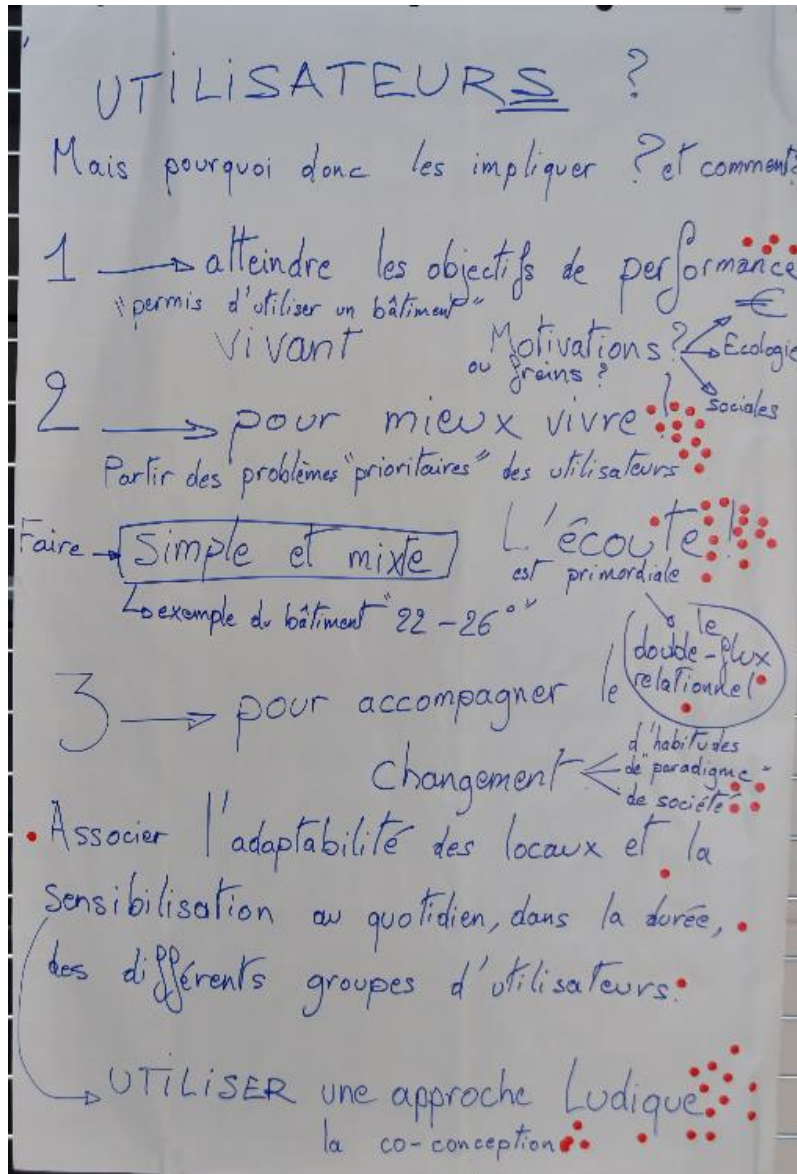 UTILISATEURS ?
Mais pourquoi donc les impliquer ? et comment?
1 → atteindre les objectifs de performance
"permis d'utiliser un bâtiment"
vivant
Motivations ?
ou freins ?
€
Ecologie
sociales
2 → pour mieux vivre !
Partir des problèmes "prioritaires" des utilisateurs
Faire → Simple et mixte
L'écoute !
est primordiale
↳ exemple du bâtiment "22 - 26°"
le
double-flux
relationnel
3 → pour accompagner le
changement
d'habitudes
de "paradigme"
de société
Associer l'adaptabilité des locaux et la
sensibilisation au quotidien, dans la durée,
des différents groupes d'utilisateurs.
→ UTILISER une approche Ludique
la co-conception